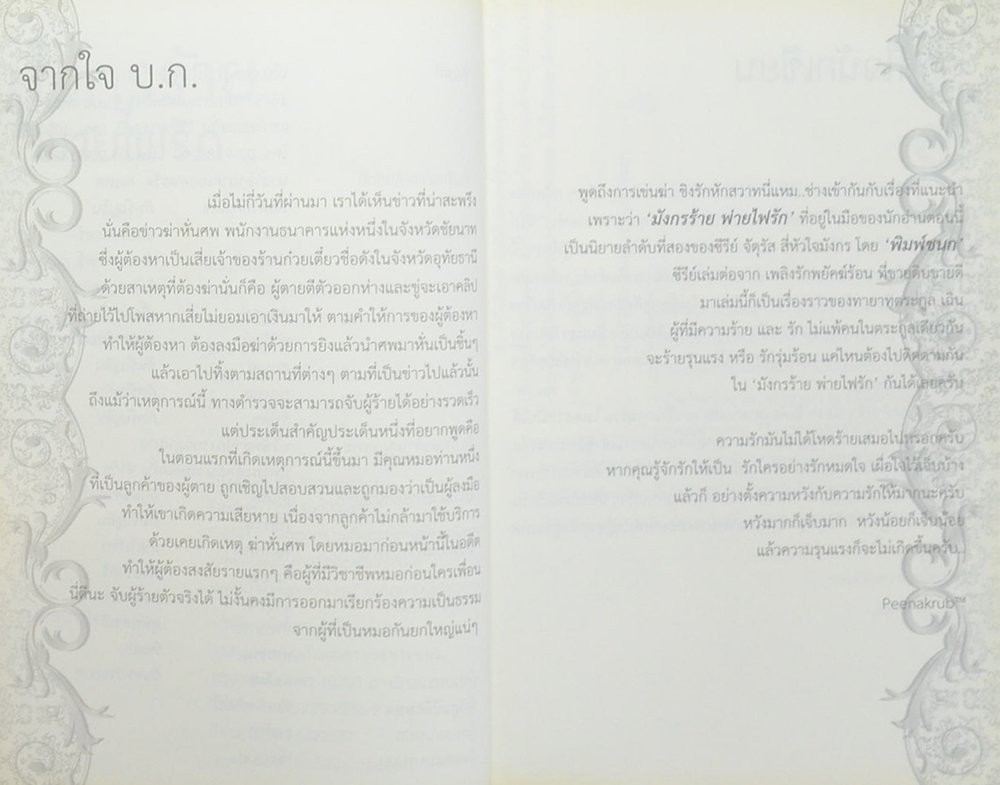 จากใจ บ.ก.
เมื่อไม่กี่วันที่ผ่านมา เราได้เห็นข่าวที่น่าสะพรึง
นั่นคือข่าวฆ่าหั่นศพ พนักงานธนาคารแห่งหนึ่งในจังหวัดชัยนาท
ซึ่งผู้ต้องหาเป็นเสี่ยเจ้าของร้านก๋วยเตี๋ยวชื่อดังในจังหวัดอุทัยธานี
ด้วยสาเหตุที่ต้องฆ่านั่นก็คือ ผู้ตายตีตัวออกห่างและขู่จะเอาคลิป
ที่ถ่ายไว้ไปโพสหากเสี่ยไม่ยอมเอาเงินมาให้ ตามคำให้การของผู้ต้องหา
ทำให้ผู้ต้องหา ต้องลงมือฆ่าด้วยการยิงแล้วนำศพมาหั่นเป็นชิ้นๆ
แล้วเอาไปทิ้งตามสถานที่ต่างๆ ตามที่เป็นข่าวไปแล้วนั้น
ถึงแม้ว่าเหตุการณ์นี้ ทางตำรวจจะสามารถจับผู้ร้ายได้อย่างรวดเร็ว
แต่ประเด็นสำคัญประเด็นหนึ่งที่อยากพูดคือ
ในตอนแรกที่เกิดเหตุการณ์นี้ขึ้นมา มีคุณหมอท่านหนึ่ง
ที่เป็นลูกค้าของผู้ตาย ถูกเชิญไปสอบสวนและถูกมองว่าเป็นผู้ลงมือ
ทำให้เขาเกิดความเสียหาย เนื่องจากลูกค้าไม่กล้ามาใช้บริการ
ด้วยเคยเกิดเหตุ ฆ่าหั่นศพ โดยหมอมาก่อนหน้านี้ในอดีต
ทำให้ผู้ต้องสงสัยรายแรกๆ คือผู้ที่มีวิชาชีพหมอก่อนใครเพื่อน
นี่ดีนะ จับผู้ร้ายตัวจริงได้ ไม่งั้นคงมีการออกมาเรียกร้องความเป็นธรรม
จากผู้ที่เป็นหมอกันยกใหญ่แน่ๆ
พูดถึงการเข่นฆ่า ชิงรักหักสวาทนี่แหม..ช่างเข้ากันกับเรื่องที่แนะนำ
เพราะว่า ‘มังกรร้าย พ่ายไฟรัก’ ที่อยู่ในมือของนักอ่านตอนนี้
เป็นนิยายลำดับที่สองของซีรีย์ จัตุรัส สี่หัวใจมังกร โดย ‘พิมพ์ชนก’
ซีรีย์เล่มต่อจาก เพลิงรักพยัคฆ์ร้อน ที่ขายดิบขายดี
มาเล่มนี้ก็เป็นเรื่องราวของทายาทตระกูล เฉิน
ผู้ที่มีความร้าย และ รัก ไม่แพ้คนในตระกูลเดียวกัน
จะร้ายรุนแรง หรือ รักรุ่มร้อน แค่ไหนต้องไปติดตามกัน
ใน ‘มังกรร้าย พ่ายไฟรัก’ กันได้เลยครับ
ความรักมันไม่ได้โหดร้ายเสมอไปหรอกครับ
หากคุณรู้จักรักให้เป็น รักใครอย่างรักหมดใจ เผื่อใจไว้เจ็บบ้าง
แล้วก็ อย่างตั้งความหวังกับความรักให้มากนะครับ
หวังมากก็เจ็บมาก หวังน้อยก็เจ็บน้อย
แล้วความรุนแรงก็จะไม่เกิดขึ้นครับ..
Peenakrub™